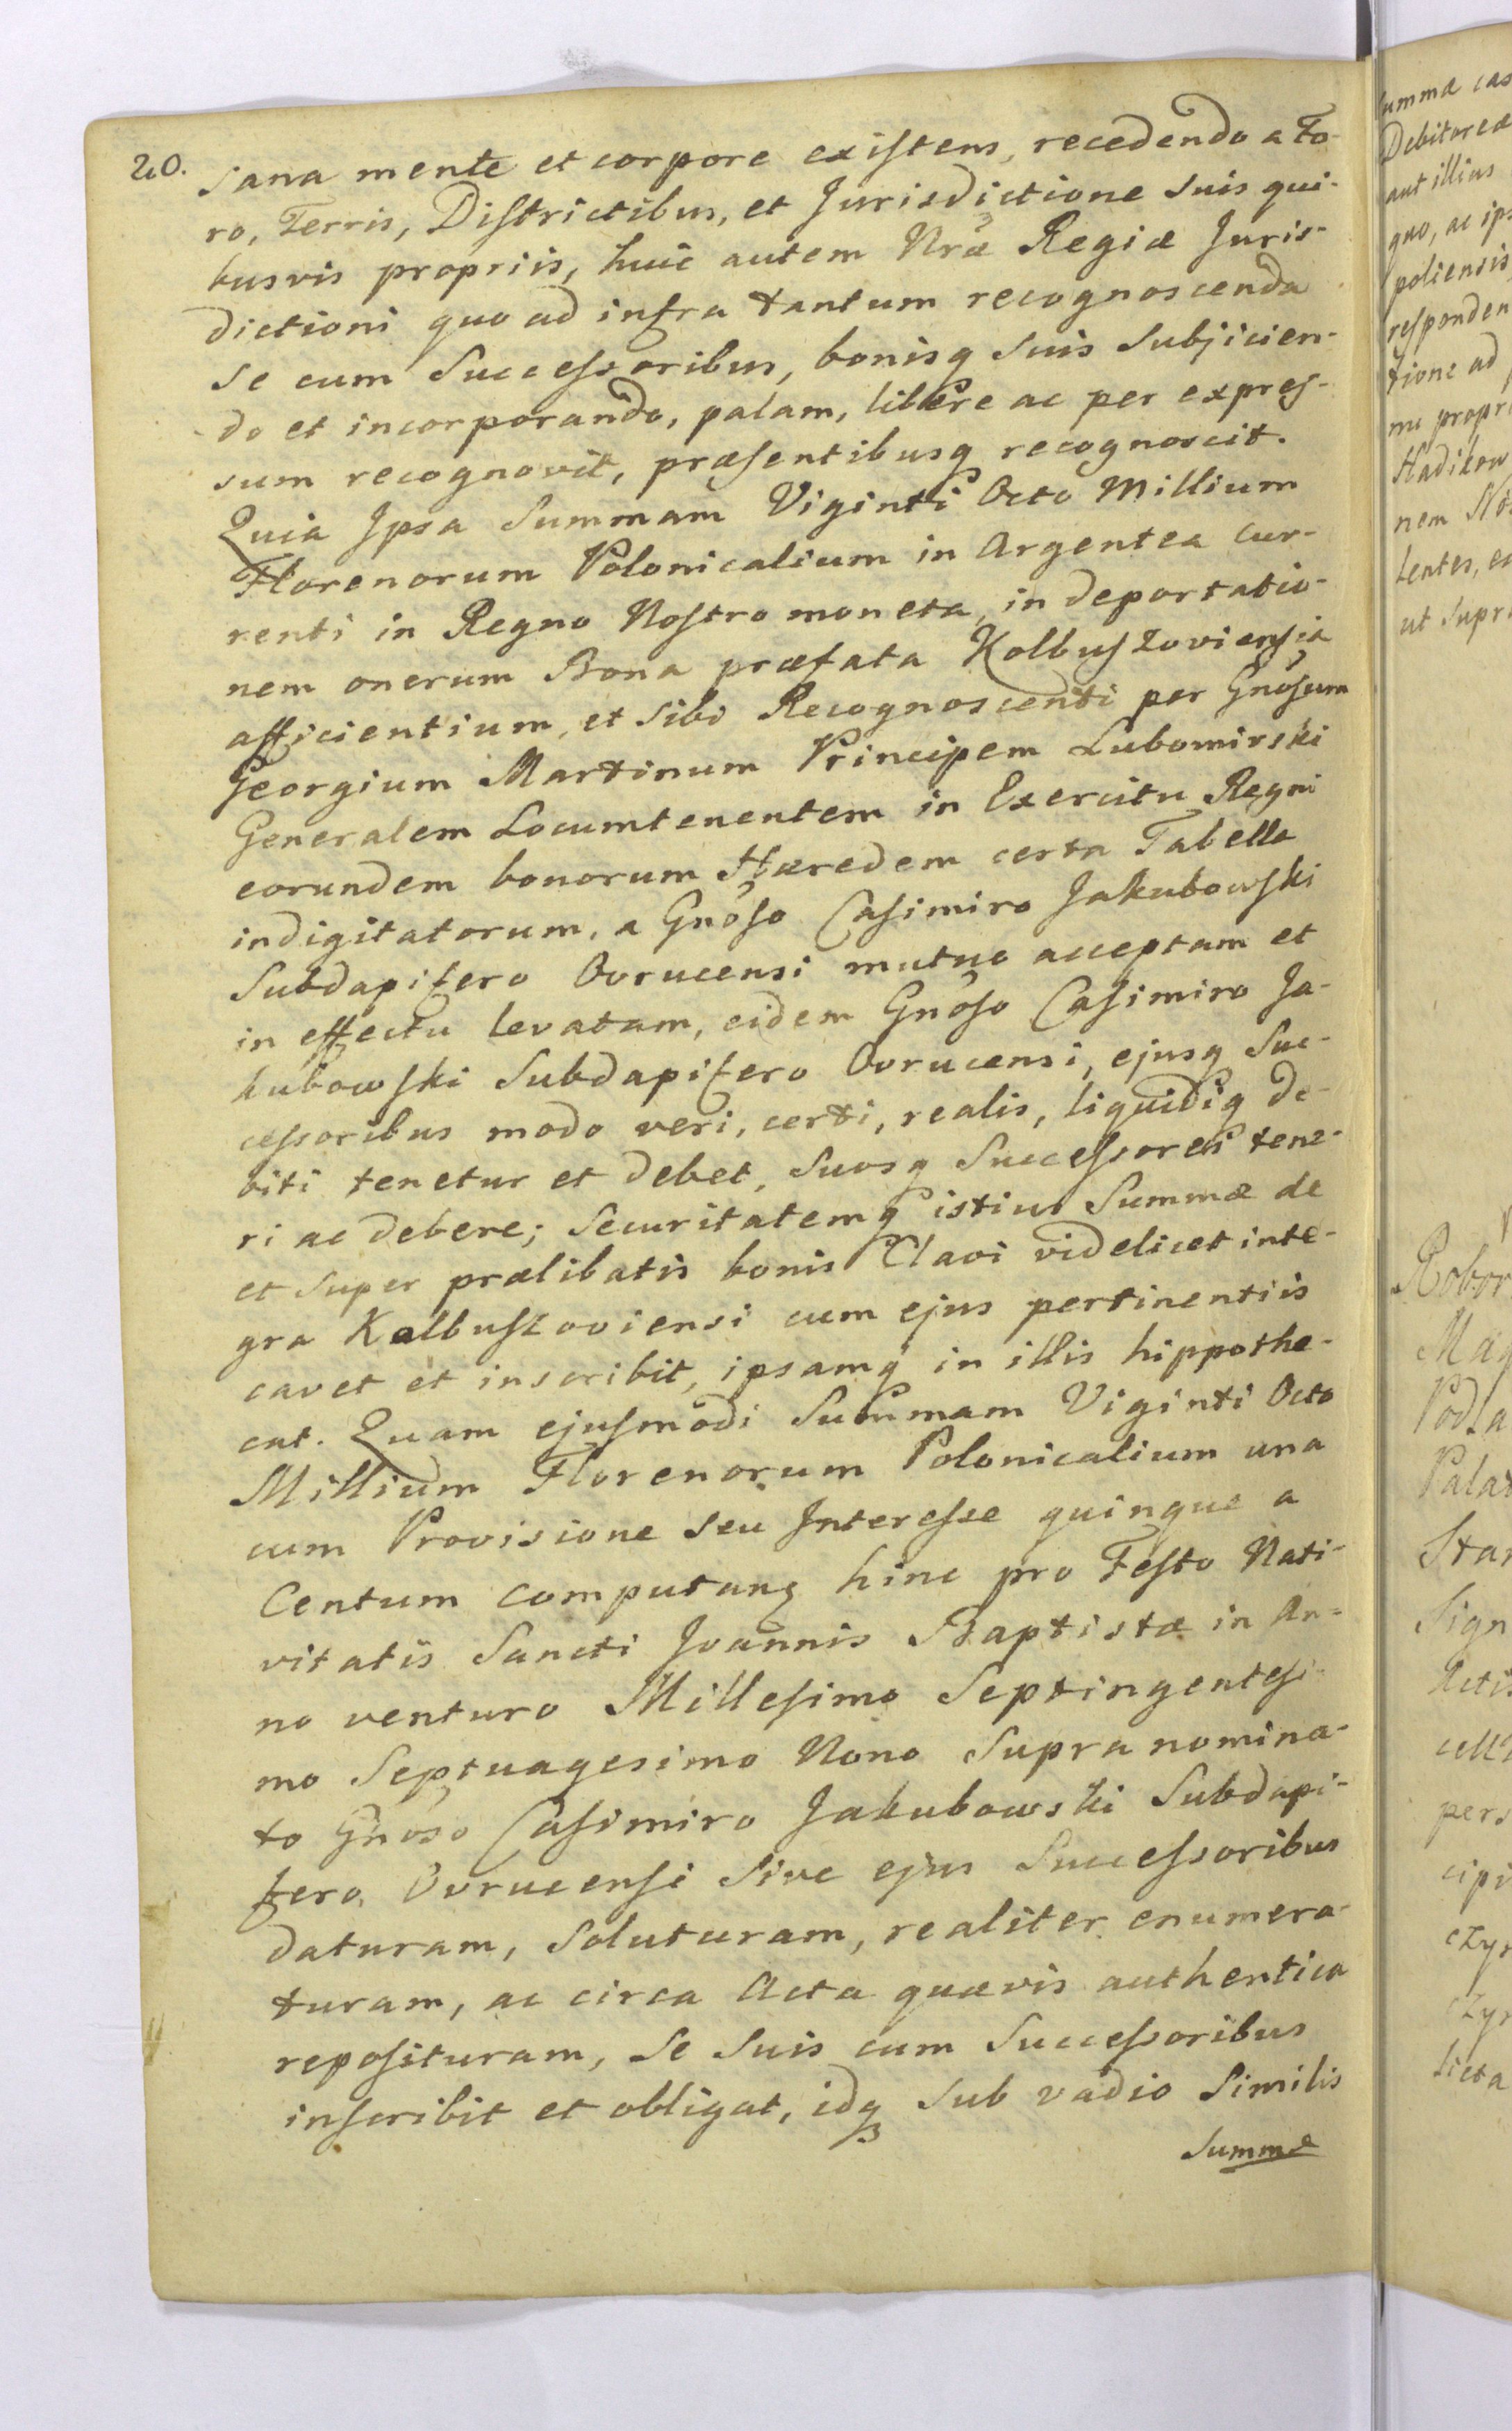 20.
sana mente et corpore existens, recedendo a Fo-
ro, Terris, Districtibus, et Jurisdictione suis qui-
busvis propriis, huic autem Nræ Regiæ Juris-
dictioni quo ad infra tantum recognoscenda
se cum Successoribus, bonisq suis subjicien-
do et incorporando, palam, libere ac per expres-
sum recognovit, præsentibusq recognoscit.
Quia Ipsa Summam Viginti Octo Millium
Florenorum Polonicalium in Argentea cur-
renti in Regno Nostro moneta, in deportatio-
nem onerum Bona præfata Kolbuszoviensia
afficientium, et sibi Recognoscenti per Gnosum
Georgium Martinum Principem Lubomirski
Generalem Locumtenentem in Exercitu Regni
eorundem bonorum Hæredem certa Tabella
indigitatorum, a Gnoso Casimiro Jakubowski
Subdapifero Ovrucensi mutuo acceptam et
in effectu levatam, eidem Gnoso Casimiro Ja-
kubowski Subdapifero Ovrucensi, ejusq Suc-
cessoribus modo veri, certi, realis, liquidiq de-
biti tenetur et debet, suosq Successores tene-
ri ac debere; Securitatemq istius Summæ de
et super prælibatis bonis Clavi videlicet inte-
gra Kolbuszoviensi cum ejus pertinentiis
cavet et inscribit, ipsamq in illis hippothe-
cat. Quam ejusmodi Summam Viginti Octo
Millium Florenorum Polonicalium una
cum Provisione seu Interesse quinque a
Centum computang hinc pro Festo Nati-
vitatis Sancti Joannis Baptistæ in An-
no venturo Millesimo Septingentesi-
mo Septuagesimo Nono supra nomina-
to Gnoso Casimiro Jakubowski Subdapi-
fero Ovrucensi sive ejus Successoribus
daturam, soluturam, realiter enumera-
turam, ac circa Acta quævis authentica
reposituram, se suis cum Successoribus
inscribit et obligat, idq sub vadio similis
Summæ